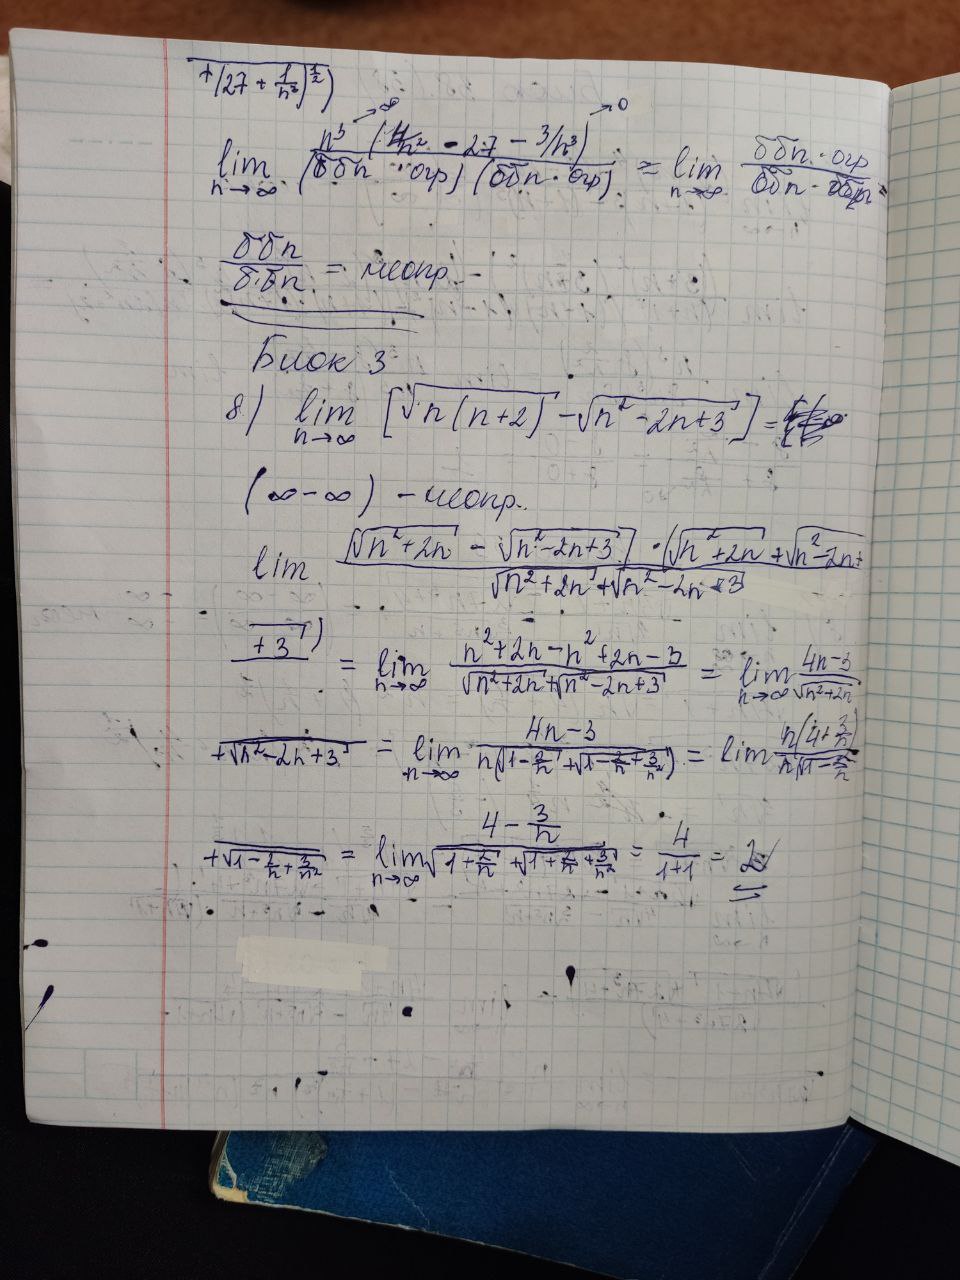 +(27 + 1/n³)^(1/2))
lim n→∞ n³ (4/n² - 27 - 3/n³) / (ббn · огр) (ббn · огр) = lim n→∞ ббn · огр / ббn ·
→ ∞ → 0
ббn / ббn = неопр. -
Блок 3
8) lim n→∞ [√n(n+2) - √n² - 2n+3] =
(∞ - ∞) - неопр.
lim [√n²+2n - √n²-2n+3] · (√n²+2n + √n²-2n+ / √n²+2n + √n²-2n+3
+3) = lim n→∞ n²+2n-n²+2n-3 / √n²+2n + √n²-2n+3 = lim n→∞ 4n-3 / √n²+2n
+√n²-2n+3 = lim n→∞ 4n-3 / n(√1-2/n + √1-2/n+3/n²) = lim n(4+3/n) / n(√1-2/n
+√1-2/n+3/n² = lim n→∞ 4 - 3/n / √1+2/n + √1+2/n+3/n² = 4 / 1+1 = 2